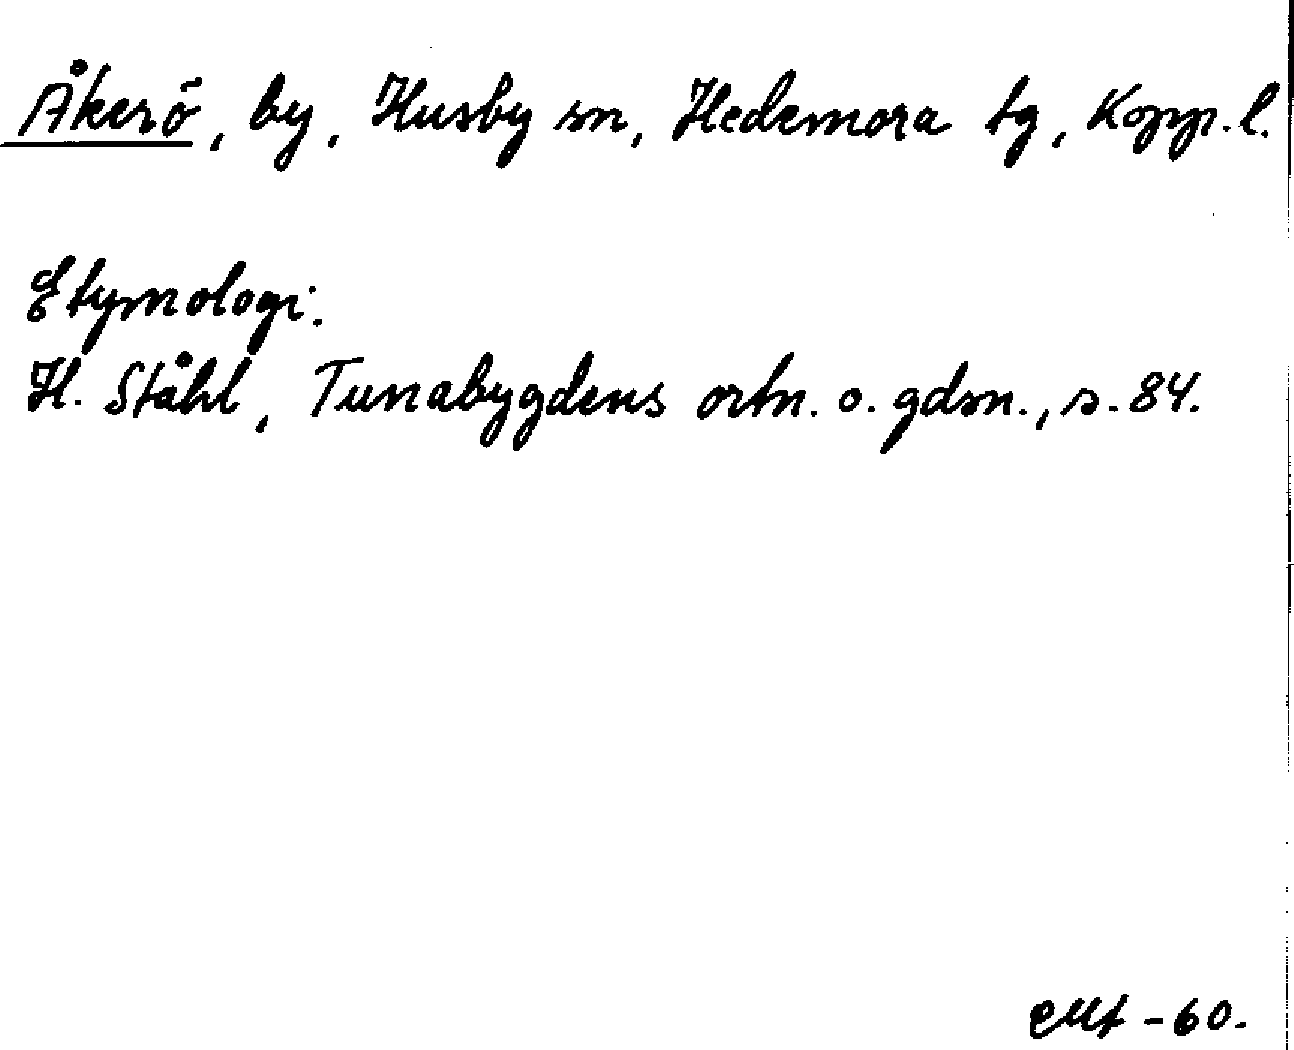 Åkerö, by, Husby sn, Hedemora tg, Kopp. l.
Etymologi:
H. Ståhl, Tunabygdens ortn. o. gdsn., s. 84.
-60.